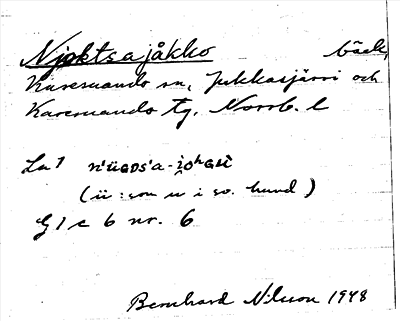 Njoktsajåkko bäck,
Karesuando sn, Jukkasjärvi och
Karesuando tg. Norrb. l
La 1 n'üGDs'a-i̯oʰGu̇
(ü : som u i sv. hund)
G 1 c 6 nr. 6
Bernhard Nilsson 1948